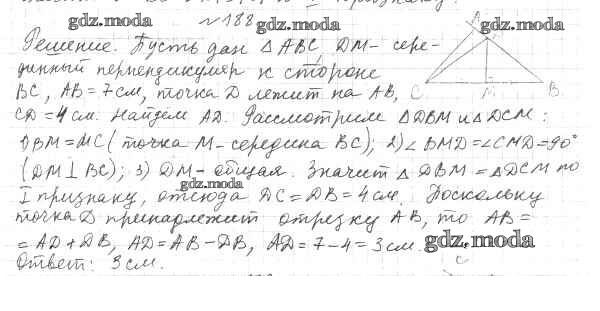 №188
Решение. Пусть дан △ABC, DM – сере-
динный перпендикуляр к стороне
BC, AB = 7 см, точка D лежит на AB,
CD = 4 см. Найдем AD. Рассмотрим △DBM и △DCM:
1) BM = MC (точка M – середина BC); 2) ∠BMD = ∠CMD = 90°
(DM ⊥ BC); 3) DM – общая. Значит △DBM = △DCM по
I признаку, отсюда DC = DB = 4 см. Поскольку
точка D принадлежит отрезку AB, то AB =
= AD + DB, AD = AB – DB, AD = 7 – 4 = 3 см.
Ответ: 3 см.
A
C M B
C
gdz.moda
gdz.moda
gdz.moda
gdz.moda
gdz.moda